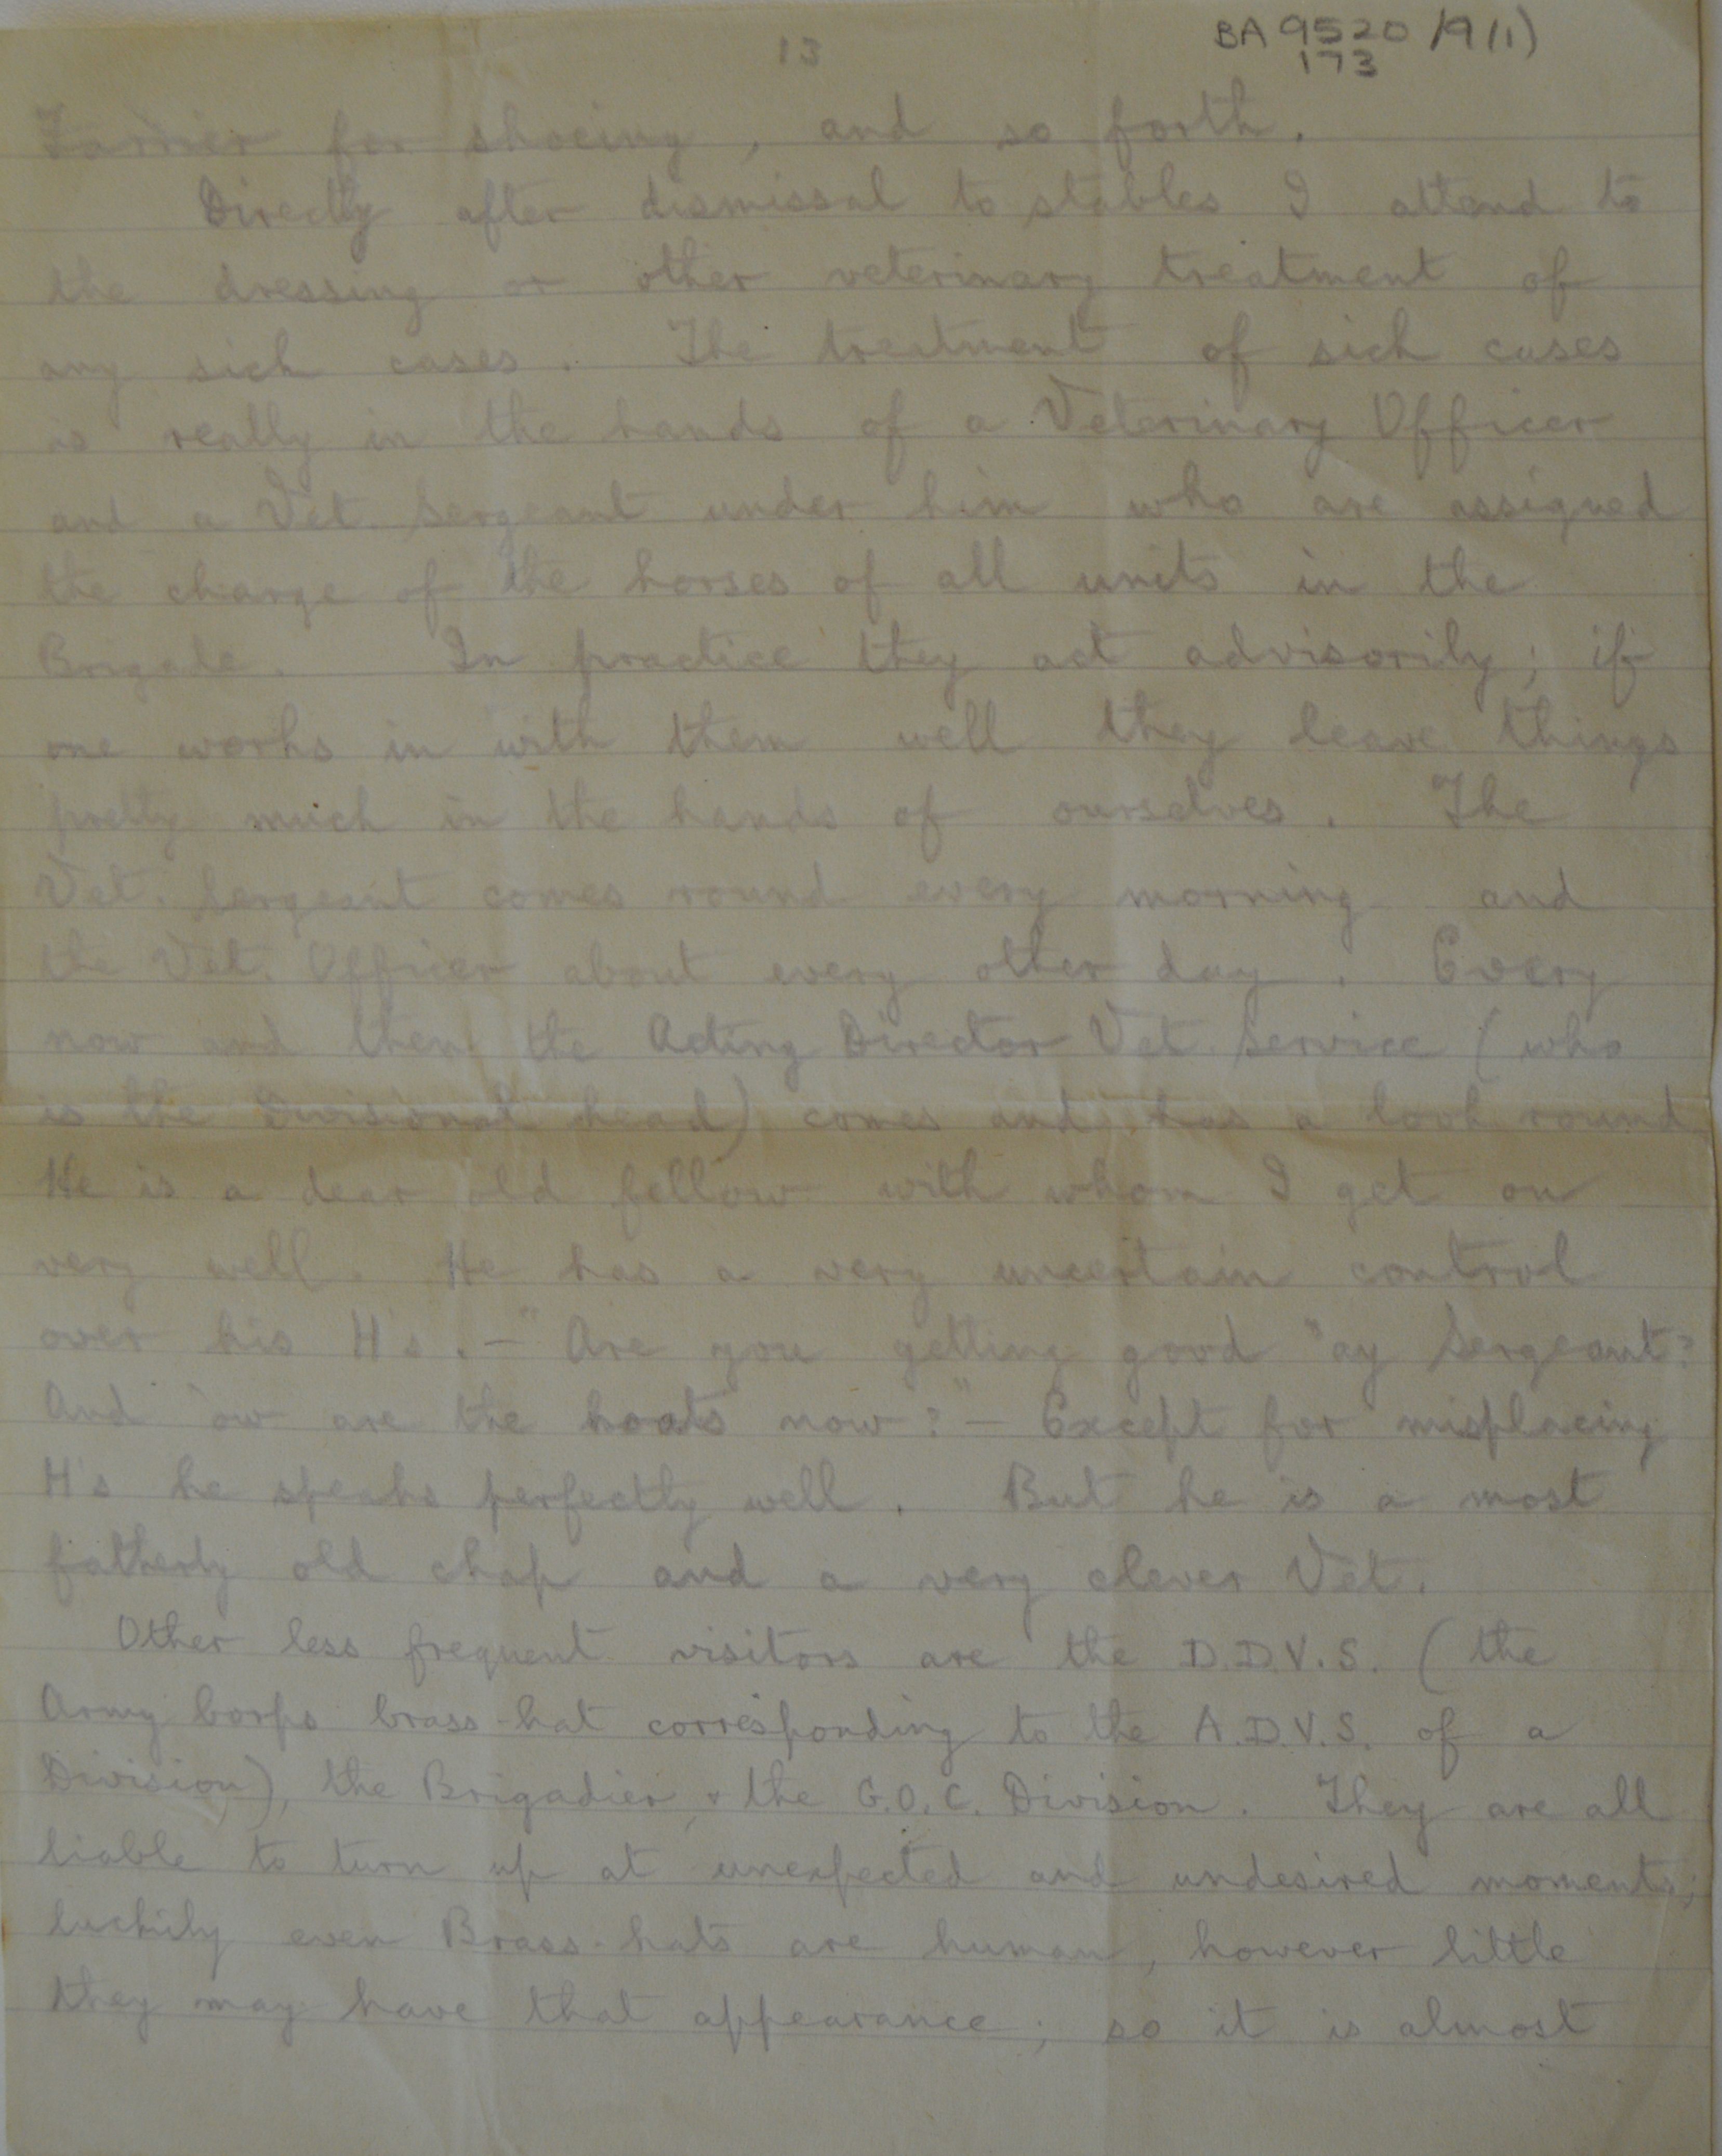 13
BA 9520 /9 (1)
173
Farrier for shoeing, and so forth.
Directly after dismissal to stables I attend to
the dressing or other veterinary treatment of
any sick cases. The treatment of sick cases
is really in the hands of a Veterinary Officer
and a Vet. Sergeant under him who are assigned
the charge of the horses of all units in the
Brigade. In practice they act advisorily; if
one works in with them well they leave things
pretty much in the hands of ourselves. The
Vet. Sergeant comes round every morning and
the Vet. Officer about every other day. Every
now and then the Acting Director Vet. Service (who
is the Divisional head) comes and has a look round.
He is a dear old fellow with whom I get on
very well. He has a very uncertain control
over his H's. – "Are you getting good 'ay Sergeant?
And 'ow are the hoats now?" – Except for misplacing
H's he speaks perfectly well. But he is a most
fatherly old chap and a very clever Vet.
Other less frequent visitors are the D.D.V.S. (the
Army Corps brass-hat corresponding to the A.D.V.S. of a
Division), the Brigadier, & the G.O.C. Division. They are all
liable to turn up at unexpected and undesired moments;
luckily even Brass-hats are human, however little
they may have that appearance; so it is almost